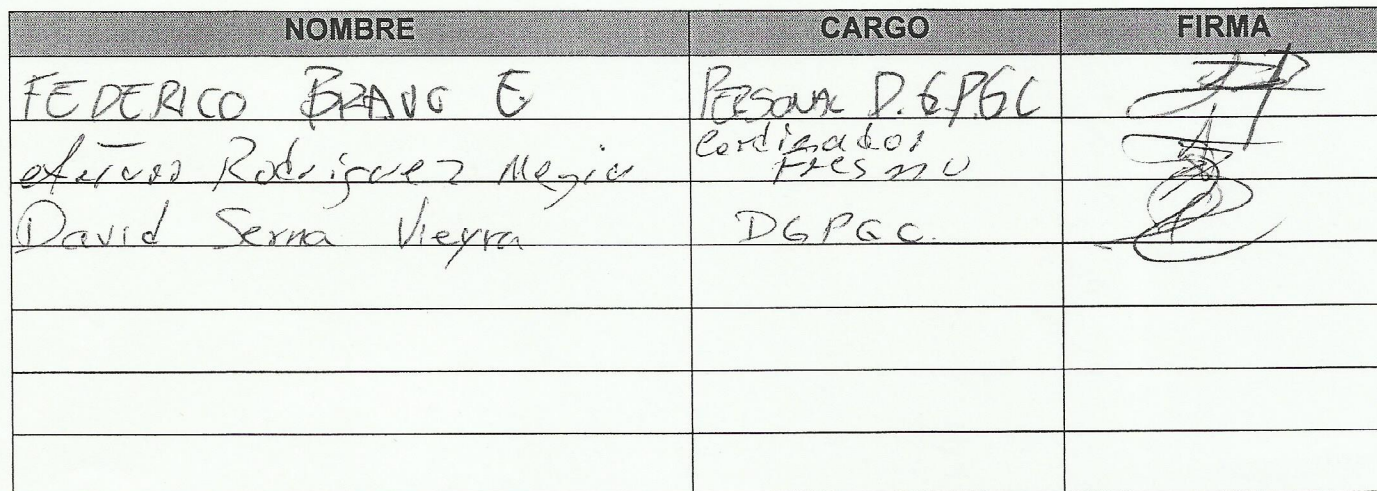 NOMBRE CARGO FIRMA
FEDERICO BRAVO E. PERSONAL D.G.P.G.C
Rodriguez Mejia Cordinador
David Serna Vieyra DGPGC.